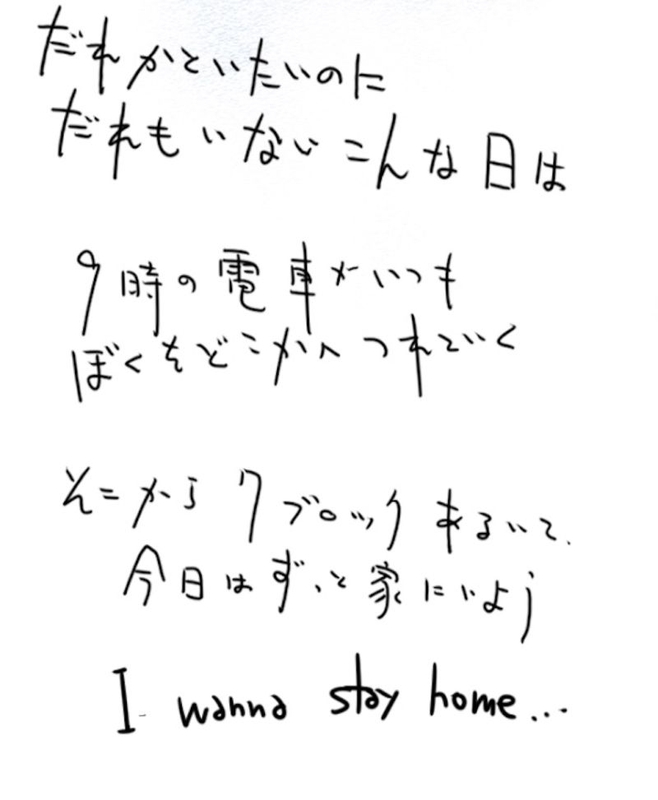 だれかといたいのに
だれもいないこんな日は
9時の電車がいつも
ぼくをどこかへつれていく
そこから7ブロックあるいて.
今日はずっと家にいよう
I wanna stay home...